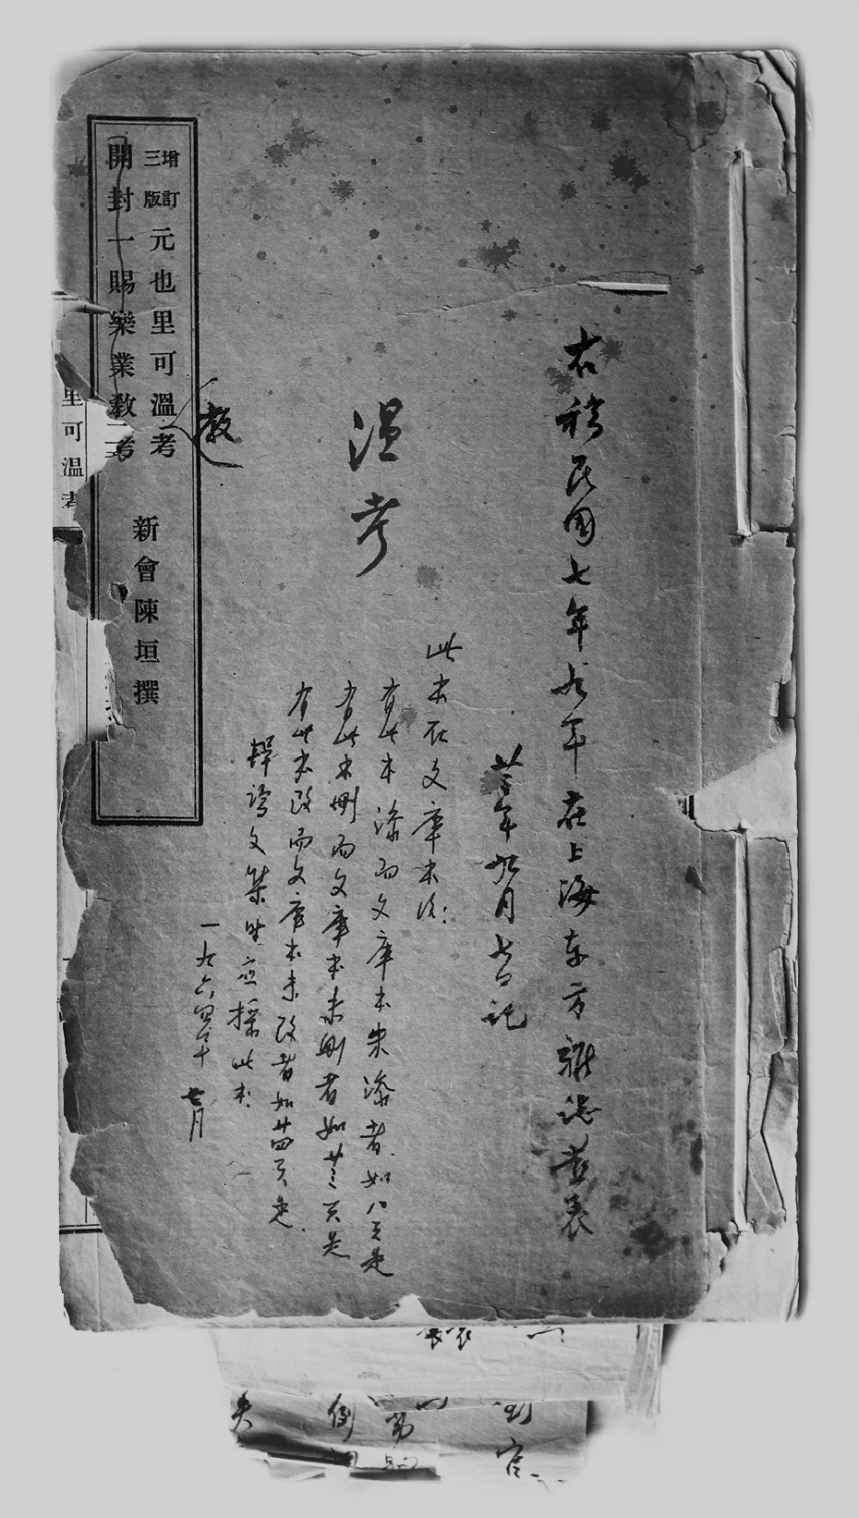 右稿民国七年九年在上海东方雜志登表
廿三年九月七日记
此本在文庫本后:
有此本添而文庫本未添者.如八頁是
有此本删而文庫本未删者如廿三頁是
有此本改而文庫本未改者如廿四頁是.
輯 文集时应採此本:
一九六四年 七月
温考
教
增訂三版
元也里可溫考
開封一賜樂業教考
新會陳垣撰
里可温考